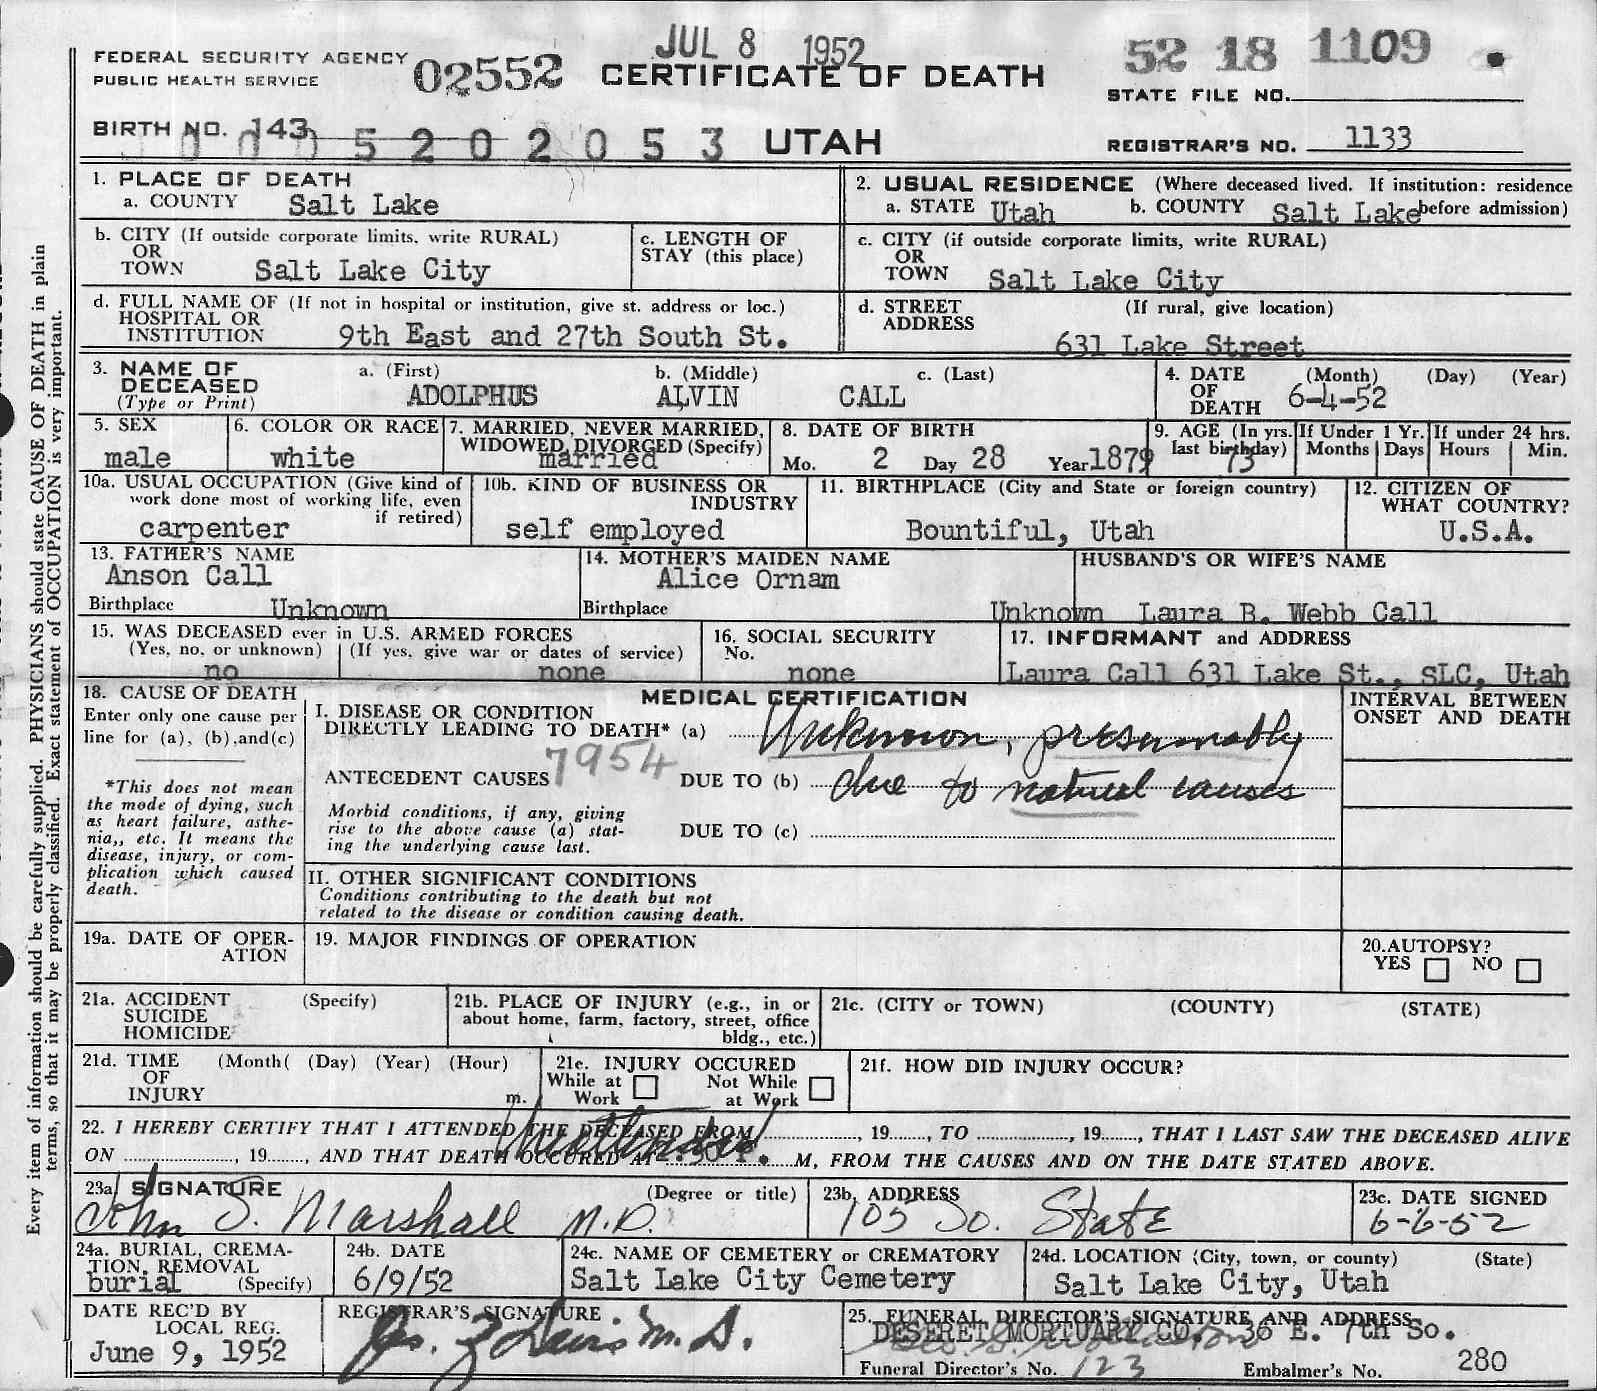 JUL 8 1952
52 18 1109
FEDERAL SECURITY AGENCY
PUBLIC HEALTH SERVICE
02552
CERTIFICATE OF DEATH
STATE FILE NO.
BIRTH NO. 143
5 2 0 2 0 5 3
UTAH
REGISTRAR'S NO. 1133
1. PLACE OF DEATH
a. COUNTY Salt Lake
2. USUAL RESIDENCE (Where deceased lived. If institution: residence
a. STATE Utah b. COUNTY Salt Lake before admission)
b. CITY (If outside corporate limits, write RURAL)
OR
TOWN Salt Lake City
c. LENGTH OF
STAY (this place)
c. CITY (if outside corporate limits, write RURAL)
OR
TOWN Salt Lake City
d. FULL NAME OF (If not in hospital or institution, give st. address or loc.)
HOSPITAL OR
INSTITUTION 9th East and 27th South St.
d. STREET (If rural, give location)
ADDRESS
631 Lake Street
3. NAME OF a. (First) b. (Middle) c. (Last)
DECEASED
(Type or Print) ADOLPHUS ALVIN CALL
4. DATE (Month) (Day) (Year)
OF
DEATH 6-4-52
5. SEX
male
6. COLOR OR RACE
white
7. MARRIED, NEVER MARRIED,
WIDOWED, DIVORGED (Specify)
married
8. DATE OF BIRTH
Mo. 2 Day 28 Year 1879
9. AGE (In yrs.
last birthday) 73
If Under 1 Yr.
Months Days
If under 24 hrs.
Hours Min.
10a. USUAL OCCUPATION (Give kind of
work done most of working life, even
if retired)
carpenter
10b. KIND OF BUSINESS OR
INDUSTRY
self employed
11. BIRTHPLACE (City and State or foreign country)
Bountiful, Utah
12. CITIZEN OF
WHAT COUNTRY?
U.S.A.
13. FATHER'S NAME
Anson Call
Birthplace Unknown
14. MOTHER'S MAIDEN NAME
Alice Ornam
Birthplace Unknown
HUSBAND'S OR WIFE'S NAME
Laura B. Webb Call
15. WAS DECEASED ever in U.S. ARMED FORCES
(Yes, no, or unknown) (If yes, give war or dates of service)
no none
16. SOCIAL SECURITY
No.
none
17. INFORMANT and ADDRESS
Laura Call 631 Lake St., SLC, Utah
18. CAUSE OF DEATH
Enter only one cause per
line for (a), (b), and (c)
*This does not mean
the mode of dying, such
as heart failure, asthe-
nia,, etc. It means the
disease, injury, or com-
plication which caused
death.
MEDICAL CERTIFICATION
I. DISEASE OR CONDITION
DIRECTLY LEADING TO DEATH* (a) Unknown, presumably
7954
ANTECEDENT CAUSES DUE TO (b) due to natural causes
Morbid conditions, if any, giving
rise to the above cause (a) stat-
ing the underlying cause last.
DUE TO (c)
INTERVAL BETWEEN
ONSET AND DEATH
II. OTHER SIGNIFICANT CONDITIONS
Conditions contributing to the death but not
related to the disease or condition causing death.
19a. DATE OF OPER-
ATION
19. MAJOR FINDINGS OF OPERATION
20. AUTOPSY?
YES NO
21a. ACCIDENT (Specify)
SUICIDE
HOMICIDE
21b. PLACE OF INJURY (e.g., in or
about home, farm, factory, street, office
bldg., etc.)
21c. (CITY or TOWN) (COUNTY) (STATE)
21d. TIME (Month( (Day) (Year) (Hour)
OF
INJURY m.
21e. INJURY OCCURED
While at Not While
Work at Work
21f. HOW DID INJURY OCCUR?
22. I HEREBY CERTIFY THAT I ATTENDED THE DECEASED FROM , 19 , TO , 19 , THAT I LAST SAW THE DECEASED ALIVE
ON , 19 , AND THAT DEATH OCCURED AT M, FROM THE CAUSES AND ON THE DATE STATED ABOVE.
23a SIGNATURE (Degree or title)
John S. Marshall M.D.
23b. ADDRESS
105 So. State
23c. DATE SIGNED
6-6-52
24a. BURIAL, CREMA-
TION, REMOVAL
burial (Specify)
24b. DATE
6/9/52
24c. NAME OF CEMETERY or CREMATORY
Salt Lake City Cemetery
24d. LOCATION (City, town, or county) (State)
Salt Lake City, Utah
DATE REC'D BY
LOCAL REG.
June 9, 1952
REGISTRAR'S SIGNATURE
25. FUNERAL DIRECTOR'S SIGNATURE AND ADDRESS
DESERET MORTUARY CO. 36 E. 7th So.
Funeral Director's No. 123 Embalmer's No. 280
Every item of information should be carefully supplied. PHYSICIANS should state CAUSE OF DEATH in plain
terms, so that it may be properly classified. Exact statement of OCCUPATION is very important.